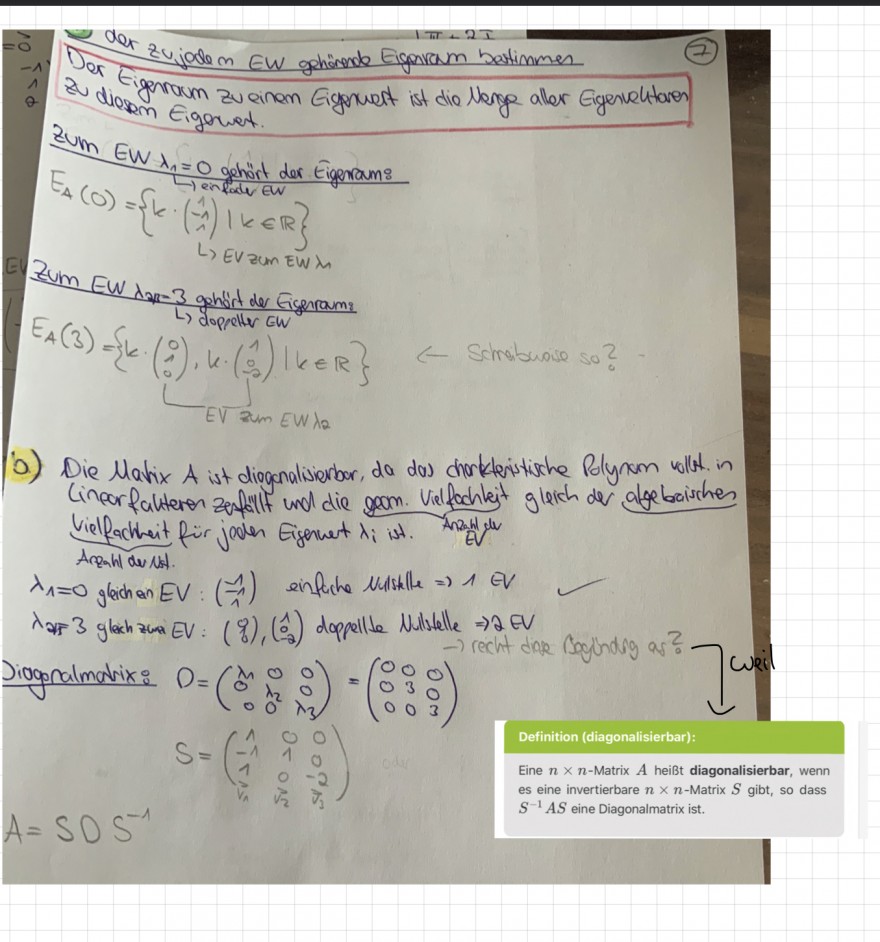 der zu jedem EW gehörende Eigenraum bestimmen
7
=0
-1
1
2
Der Eigenraum zu einem Eigenwert ist die Menge aller Eigenvektoren
zu diesem Eigenwert.
Zum EW λ₁=0 gehört der Eigenraum:
↳ einfacher EW
E_A(0) = {k · (1 -1 1) | k ∈ ℝ}
↳ EV zum EW λ₁
EV
Zum EW λ₂,₃=3 gehört der Eigenraum:
↳ doppelter EW
E_A(3) = {k · (0 1 0), k · (1 0 -2) | k ∈ ℝ} ← Schreibweise so?
EV zum EW λ₂
b) Die Matrix A ist diagonalisierbar, da das charkteristische Polynom vollst. in
Linearfaktoren zerfällt und die geom. Vielfachheit gleich der algebraischen
Vielfachheit für jeden Eigenwert λi ist.
Anzahl der EV
Anzahl der Nst.
λ₁=0 gleich ein EV: (1 -1 1) einfache Nullstelle => 1 EV ✓
λ₂,₃=3 gleich zwei EV: (0 1 0), (1 0 -2) doppellte Nullstelle => 2 EV
→ reicht diese Begündung as?
weil
Diagonalmatrix: D = (λ₁ 0 0 / 0 λ₂ 0 / 0 0 λ₃) = (0 0 0 / 0 3 0 / 0 0 3)
S = (1 0 0 / -1 1 0 / 1 0 -2) oder
v₁ v₂ v₃
A = S D S⁻¹
Definition (diagonalisierbar):
Eine n × n-Matrix A heißt diagonalisierbar, wenn
es eine invertierbare n × n-Matrix S gibt, so dass
S⁻¹AS eine Diagonalmatrix ist.